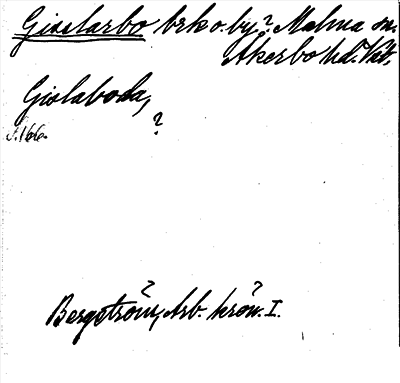 Giselarbo brk o. by? Malma sn.
Åkerbo hd. Väst.
Gislaboda,
?
s. 166.
Bergström, Arb. krön. I.